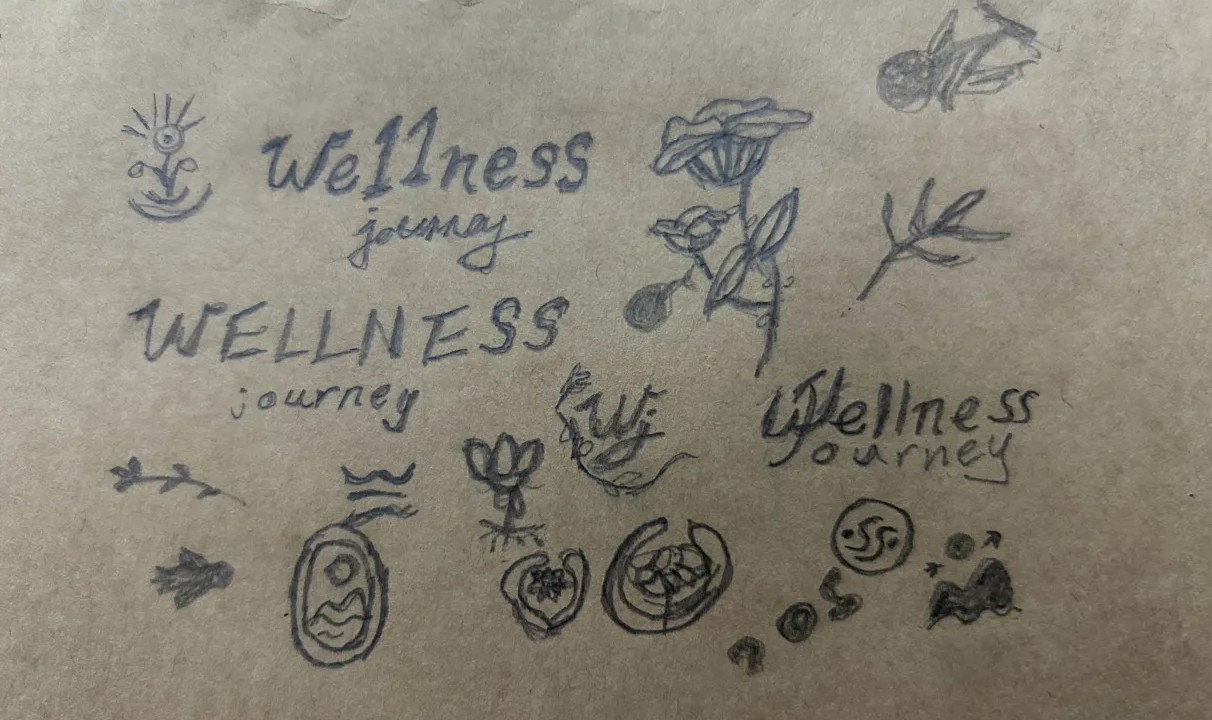 Wellness
journey
WELLNESS
journey
Wj
Wellness
Journey
SS